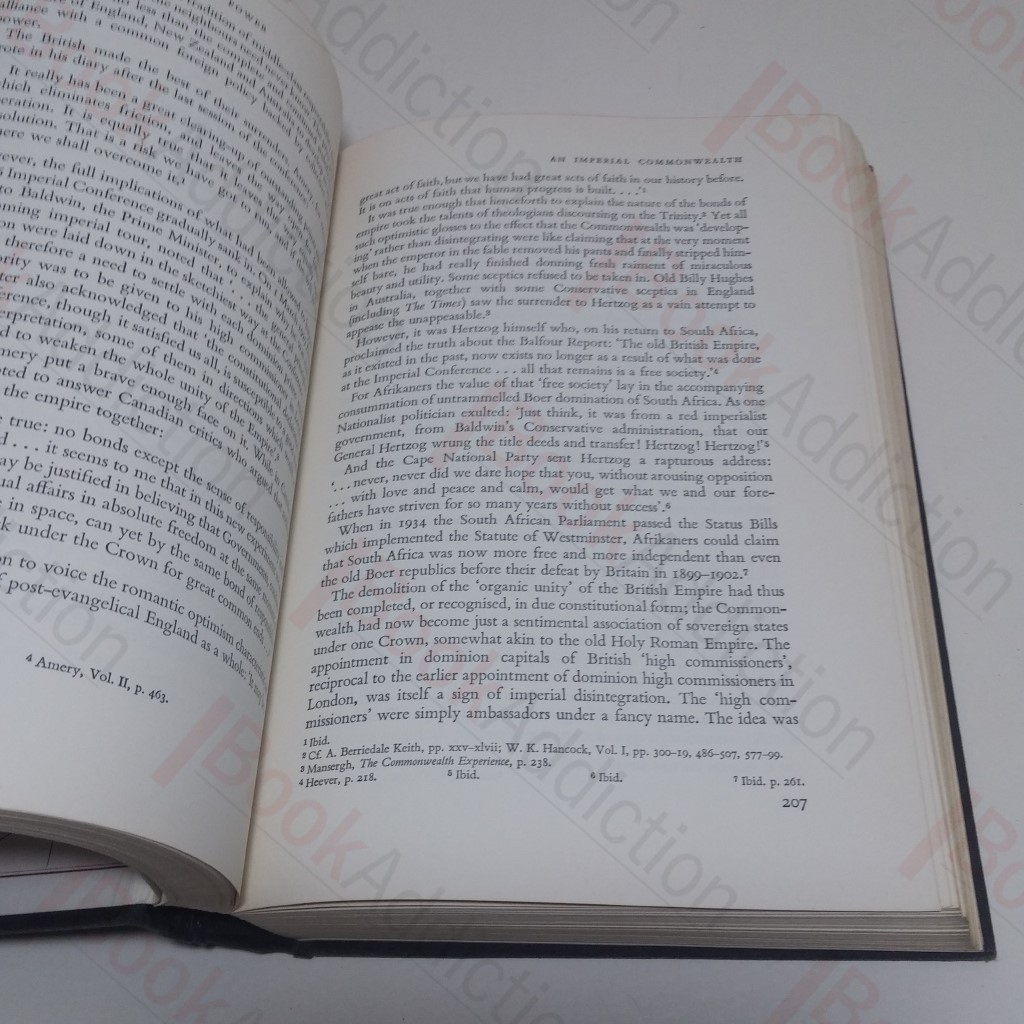 POWER
tradition of
neighbours of middle-class
no less than the complete and
of England, New Zealand and Australia
alliance with a common foreign policy backed by
power.
The British made the best of their surrenders.
wrote in his diary after the last session of the
It really has been a great clearing-up of outstanding
which eliminates friction, and
It is equally true that it leaves the way open for
solution. That is a risk we have got to run, and
where we shall overcome it.
the full implications of what had been
Imperial Conference gradually sank in.
to Baldwin, the Prime Minister, to explain why
coming imperial tour, noted that '. . .
were laid down in the sketchiest way at the
therefore a need to settle with each dominion
was to be given to his high commission
also acknowledged that 'the constitutional
though it satisfied us all, is susceptible
interpretation, some of them in directions which
to weaken the whole unity of the Empire'.
Amery put a brave enough face on it. While in
to answer Canadian critics who argued that
the empire together:
true: no bonds except the sense of
. . . it seems to me that in this new experiment
may be justified in believing that Governments,
affairs in absolute freedom at the same time
in space, can yet by the same bond of
under the Crown for great common ends
to voice the romantic optimism
post-evangelical England as a whole:
4 Amery, Vol. II, p. 463.
AN IMPERIAL COMMONWEALTH
great act of faith, but we have had great acts of faith in our history before.
It is on acts of faith that human progress is built. . . .'1
It was true enough that henceforth to explain the nature of the bonds of
empire took the talents of theologians discoursing on the Trinity.2 Yet all
such optimistic glosses to the effect that the Commonwealth was 'develop-
ing' rather than disintegrating were like claiming that at the very moment
when the emperor in the fable removed his pants and finally stripped him-
self bare, he had really finished donning fresh raiment of miraculous
beauty and utility. Some sceptics refused to be taken in. Old Billy Hughes
in Australia, together with some Conservative sceptics in England
(including The Times) saw the surrender to Hertzog as a vain attempt to
appease the unappeasable.3
However, it was Hertzog himself who, on his return to South Africa,
proclaimed the truth about the Balfour Report: 'The old British Empire,
as it existed in the past, now exists no longer as a result of what was done
at the Imperial Conference . . . all that remains is a free society.'4
For Afrikaners the value of that 'free society' lay in the accompanying
consummation of untrammelled Boer domination of South Africa. As one
Nationalist politician exulted: 'Just think, it was from a red imperialist
government, from Baldwin's Conservative administration, that our
General Hertzog wrung the title deeds and transfer! Hertzog! Hertzog!'5
And the Cape National Party sent Hertzog a rapturous address:
'. . . never, never did we dare hope that you, without arousing opposition
. . . with love and peace and calm, would get what we and our fore-
fathers have striven for so many years without success'.6
When in 1934 the South African Parliament passed the Status Bills
which implemented the Statute of Westminster, Afrikaners could claim
that South Africa was now more free and more independent than even
the old Boer republics before their defeat by Britain in 1899–1902.7
The demolition of the 'organic unity' of the British Empire had thus
been completed, or recognised, in due constitutional form; the Common-
wealth had now become just a sentimental association of sovereign states
under one Crown, somewhat akin to the old Holy Roman Empire. The
appointment in dominion capitals of British 'high commissioners',
reciprocal to the earlier appointment of dominion high commissioners in
London, was itself a sign of imperial disintegration. The 'high com-
missioners' were simply ambassadors under a fancy name. The idea was
1 Ibid.
2 Cf. A. Berriedale Keith, pp. xxv–xlvii; W. K. Hancock, Vol. I, pp. 300–19, 486–507, 577–99.
3 Mansergh, The Commonwealth Experience, p. 238.
4 Heever, p. 218. 5 Ibid. 6 Ibid. 7 Ibid. p. 261.
207
BookAddiction